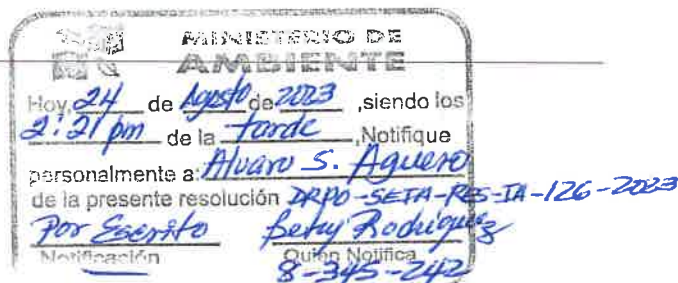 MINISTERIO DE
AMBIENTE
Hoy, 24 de Agosto de 2023, siendo los
2:21 pm de la tarde, Notifique
personalmente a: Alvaro S. Aguero
de la presente resolución DRPO-SEIA-RES-IA-126-2023
Por Escrito Betsy Rodriguez
Notificación Quien Notifica
8-345-242